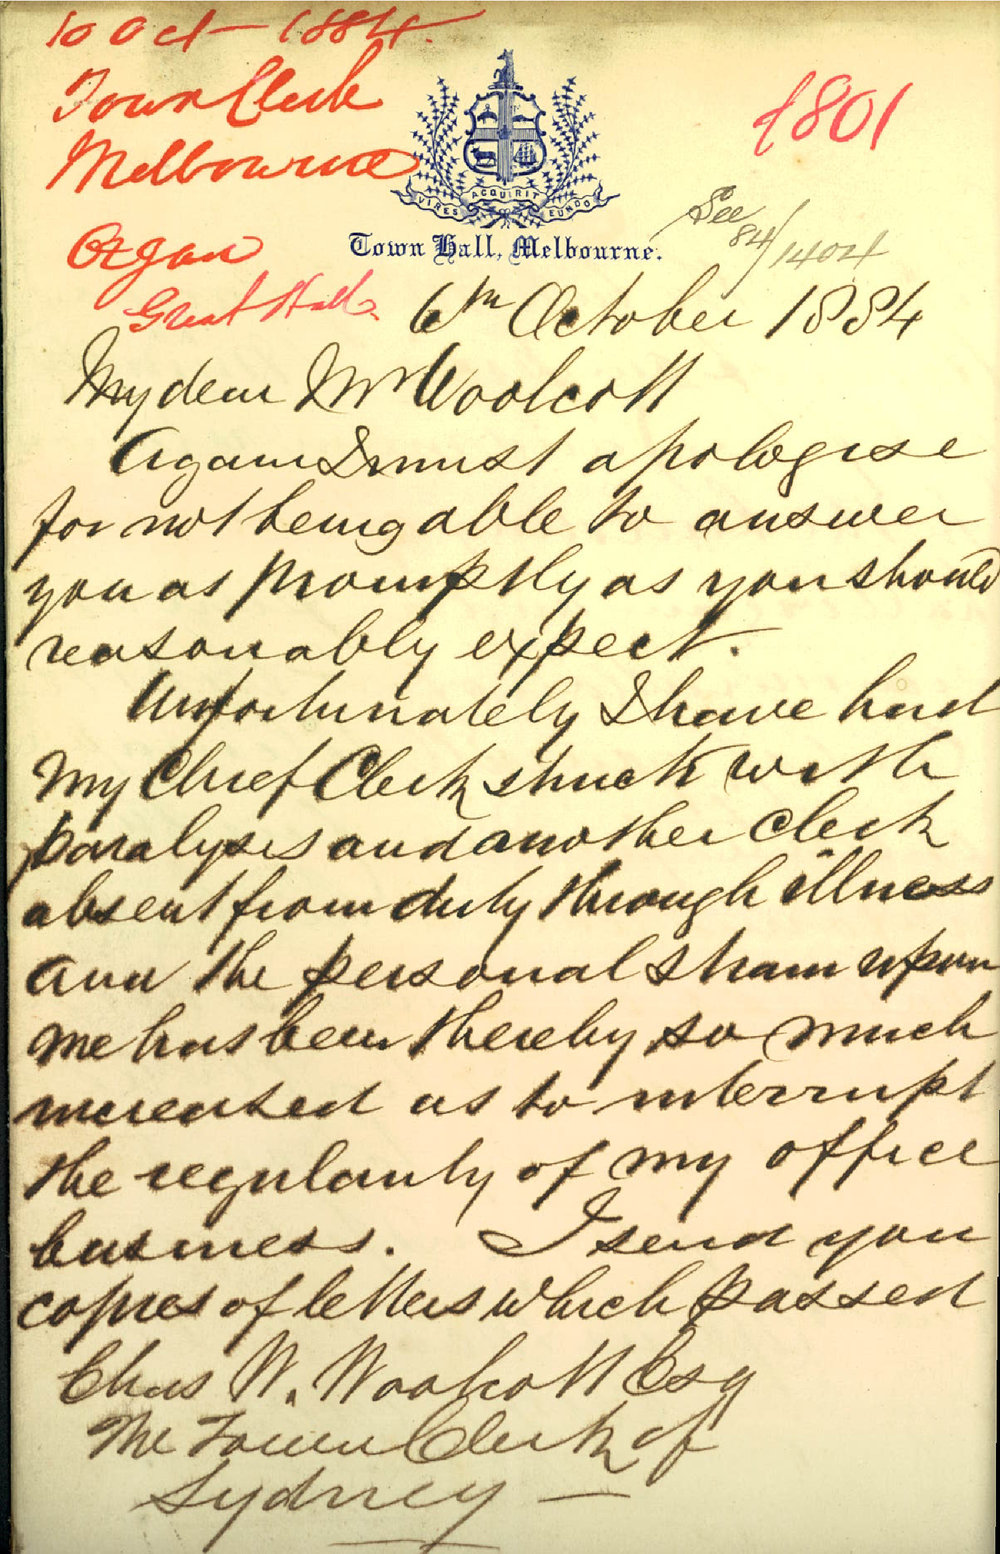 10 Oct - 1884.
Town Clerk
Melbourne
1801
Organ
Great Hall
VIRES ACQUIRIT EUNDO
Town Hall, Melbourne.
See 84/1404
6th October 1884
My dear Mr Woolcott
Again I must apologise
for not being able to answer
you as promptly as you should
reasonably expect.
Unfortunately I have had
my Chief Clerk struck with
paralysis and another clerk
absent from duty through illness
and the personal strain upon
me has been thereby so much
increased as to interrupt
the regularity of my office
business. I send you
copies of letters which passed
Chas W. Woolcott Esq
The Town Clerk of
Sydney —